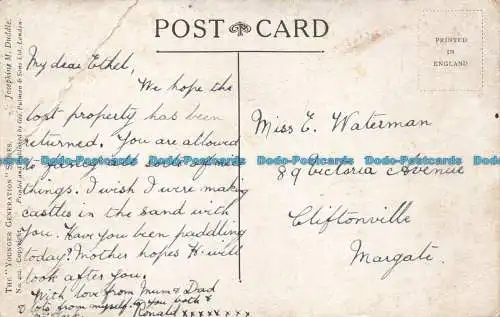 POST CARD
PRINTED
IN
ENGLAND
THE "YOUNGER GENERATION" SERIES. Josephine M. Duddle.
No. 402. Copyright. Printed and Published by Geo. Pulman & Sons Ltd., London.
My dear Ethel,
We hope the
lost property has been
returned. You are allowed
to fancy all sorts of
things. I wish I were making
castles in the sand with
you. Have you been paddling
today? Mother hopes K. will
look after you.
With love from Mum & Dad
& lots from myself to you both &
Ronald xxxxxxxx
Miss E. Waterman
89 Victoria Avenue
Cliftonville
Margate.
Dodo-Postcards Dodo-Postcards Dodo-Postcards Dodo-Postcards